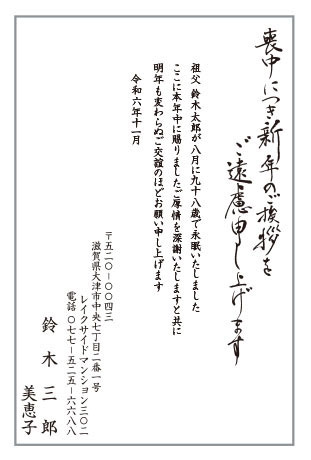 喪中につき新年のご挨拶を
ご遠慮申し上げます
祖父 鈴木太郎が八月に九十八歳で永眠いたしました
ここに本年中に賜りましたご厚情を深謝いたしますと共に
明年も変わらぬご交誼のほどお願い申し上げます
令和六年十一月
〒五二〇-〇〇四三
滋賀県大津市中央七丁目二番一号
レイクサイドマンション三〇二
電話 〇七七-五二五-六六八八
鈴木三郎
美恵子